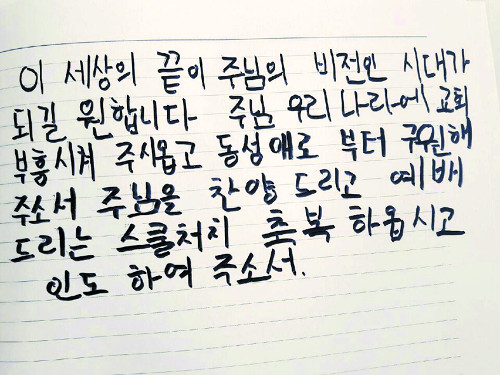 이 세상의 끝이 주님의 비전인 시대가
되길 원합니다 주님 우리 나라에 교회
부흥시켜 주시옵고 동성애로 부터 구원해
주소서 주님을 찬양 드리고 예배
드리는 스쿨처치 축복 하옵시고
인도 하여 주소서.